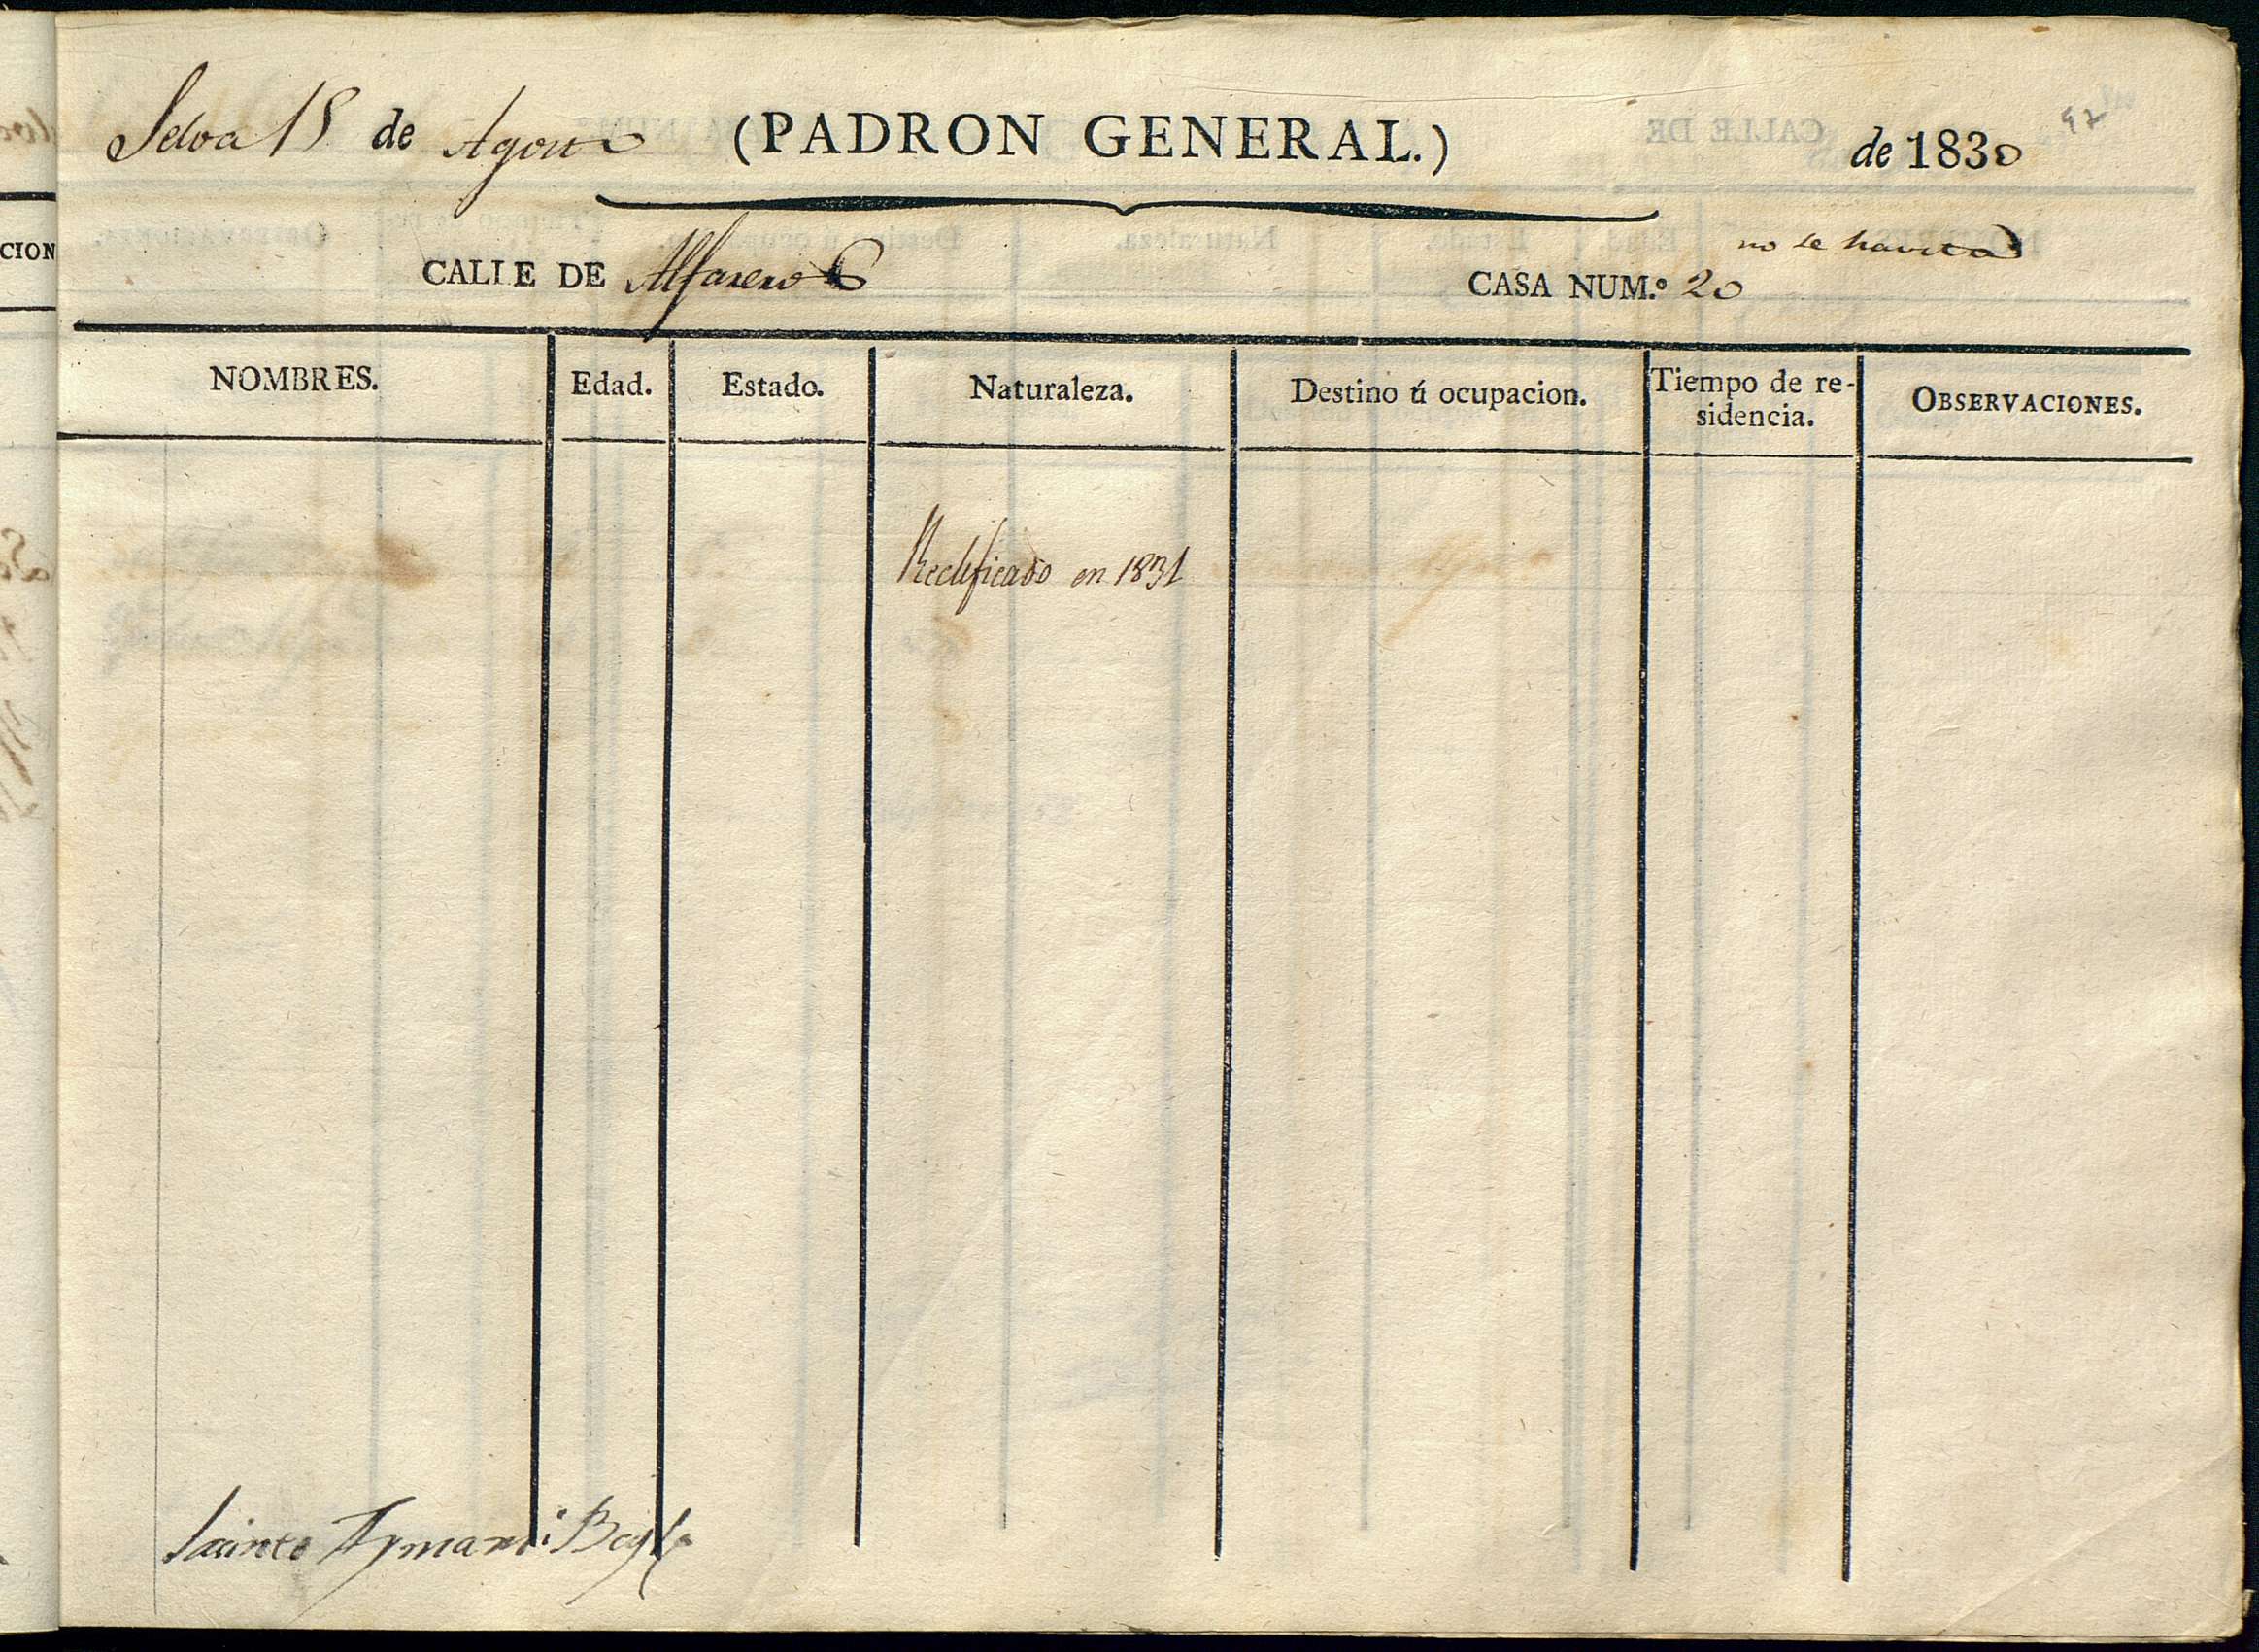 Selva 18 de Agosto (PADRON GENERAL.) de 1830
92
no se havita
CALLE DE Alfareros CASA NUM.º 20
NOMBRES. Edad. Estado. Naturaleza. Destino ú ocupacion. Tiempo de re-sidencia. OBSERVACIONES.
Rectificado en 1831
Jacinto Aymami Bayle
CION